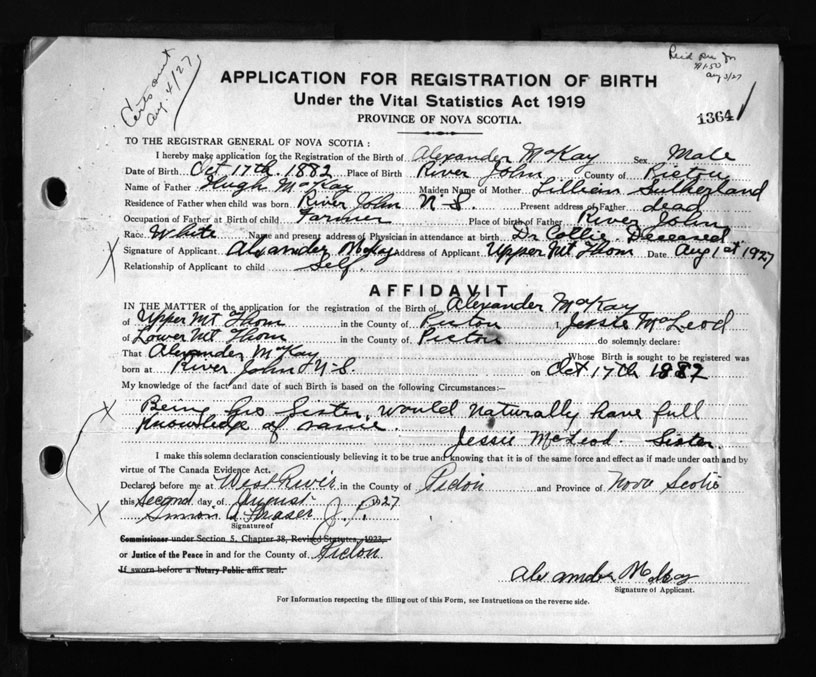 Certs out
Aug. 4/27.
$1.50
Aug 3/27
APPLICATION FOR REGISTRATION OF BIRTH
Under the Vital Statistics Act 1919
PROVINCE OF NOVA SCOTIA.
1364
TO THE REGISTRAR GENERAL OF NOVA SCOTIA:
I hereby make application for the Registration of the Birth of Alexander McKay Sex Male
Date of Birth Oct 17th. 1882 Place of Birth River John County of Pictou
Name of Father Hugh McKay Maiden Name of Mother Lillian Sutherland
Residence of Father when child was born River John N-S Present address of Father dead
Occupation of Father at Birth of child Farmer Place of birth of Father River John
Race White Name and present address of Physician in attendance at birth Dr Collie. Deseased
X Signature of Applicant Alexander McKay Address of Applicant Upper Mt Thom Date Aug 1st 1927
Relationship of Applicant to child Self.
AFFIDAVIT
IN THE MATTER of the application for the registration of the Birth of Alexander McKay
of Upper Mt Thom in the County of Pictou I, Jessie McLeod
of Lower Mt Thom in the County of Pictou do solemnly declare:
That Alexander McKay Whose Birth is sought to be registered was
born at River John N-S. on Oct 17th 1882
My knowledge of the fact and date of such Birth is based on the following Circumstances:—
X Being his Sister, would naturally have full
knowledge of same.
Jessie McLeod. Sister.
I make this solemn declaration conscientiously believing it to be true and knowing that it is of the same force and effect as if made under oath and by
virtue of The Canada Evidence Act.
Declared before me at West River in the County of Pictou and Province of Nova Scotia
this Second day of August 1927
X Simon Fraser J. P.
Signature of
Commissioner under Section 5, Chapter 38, Revised Statutes, 1923,
or Justice of the Peace in and for the County of Pictou.
If sworn before a Notary Public affix seal.
Alexander McKay
Signature of Applicant.
For Information respecting the filling out of this Form, see Instructions on the reverse side.